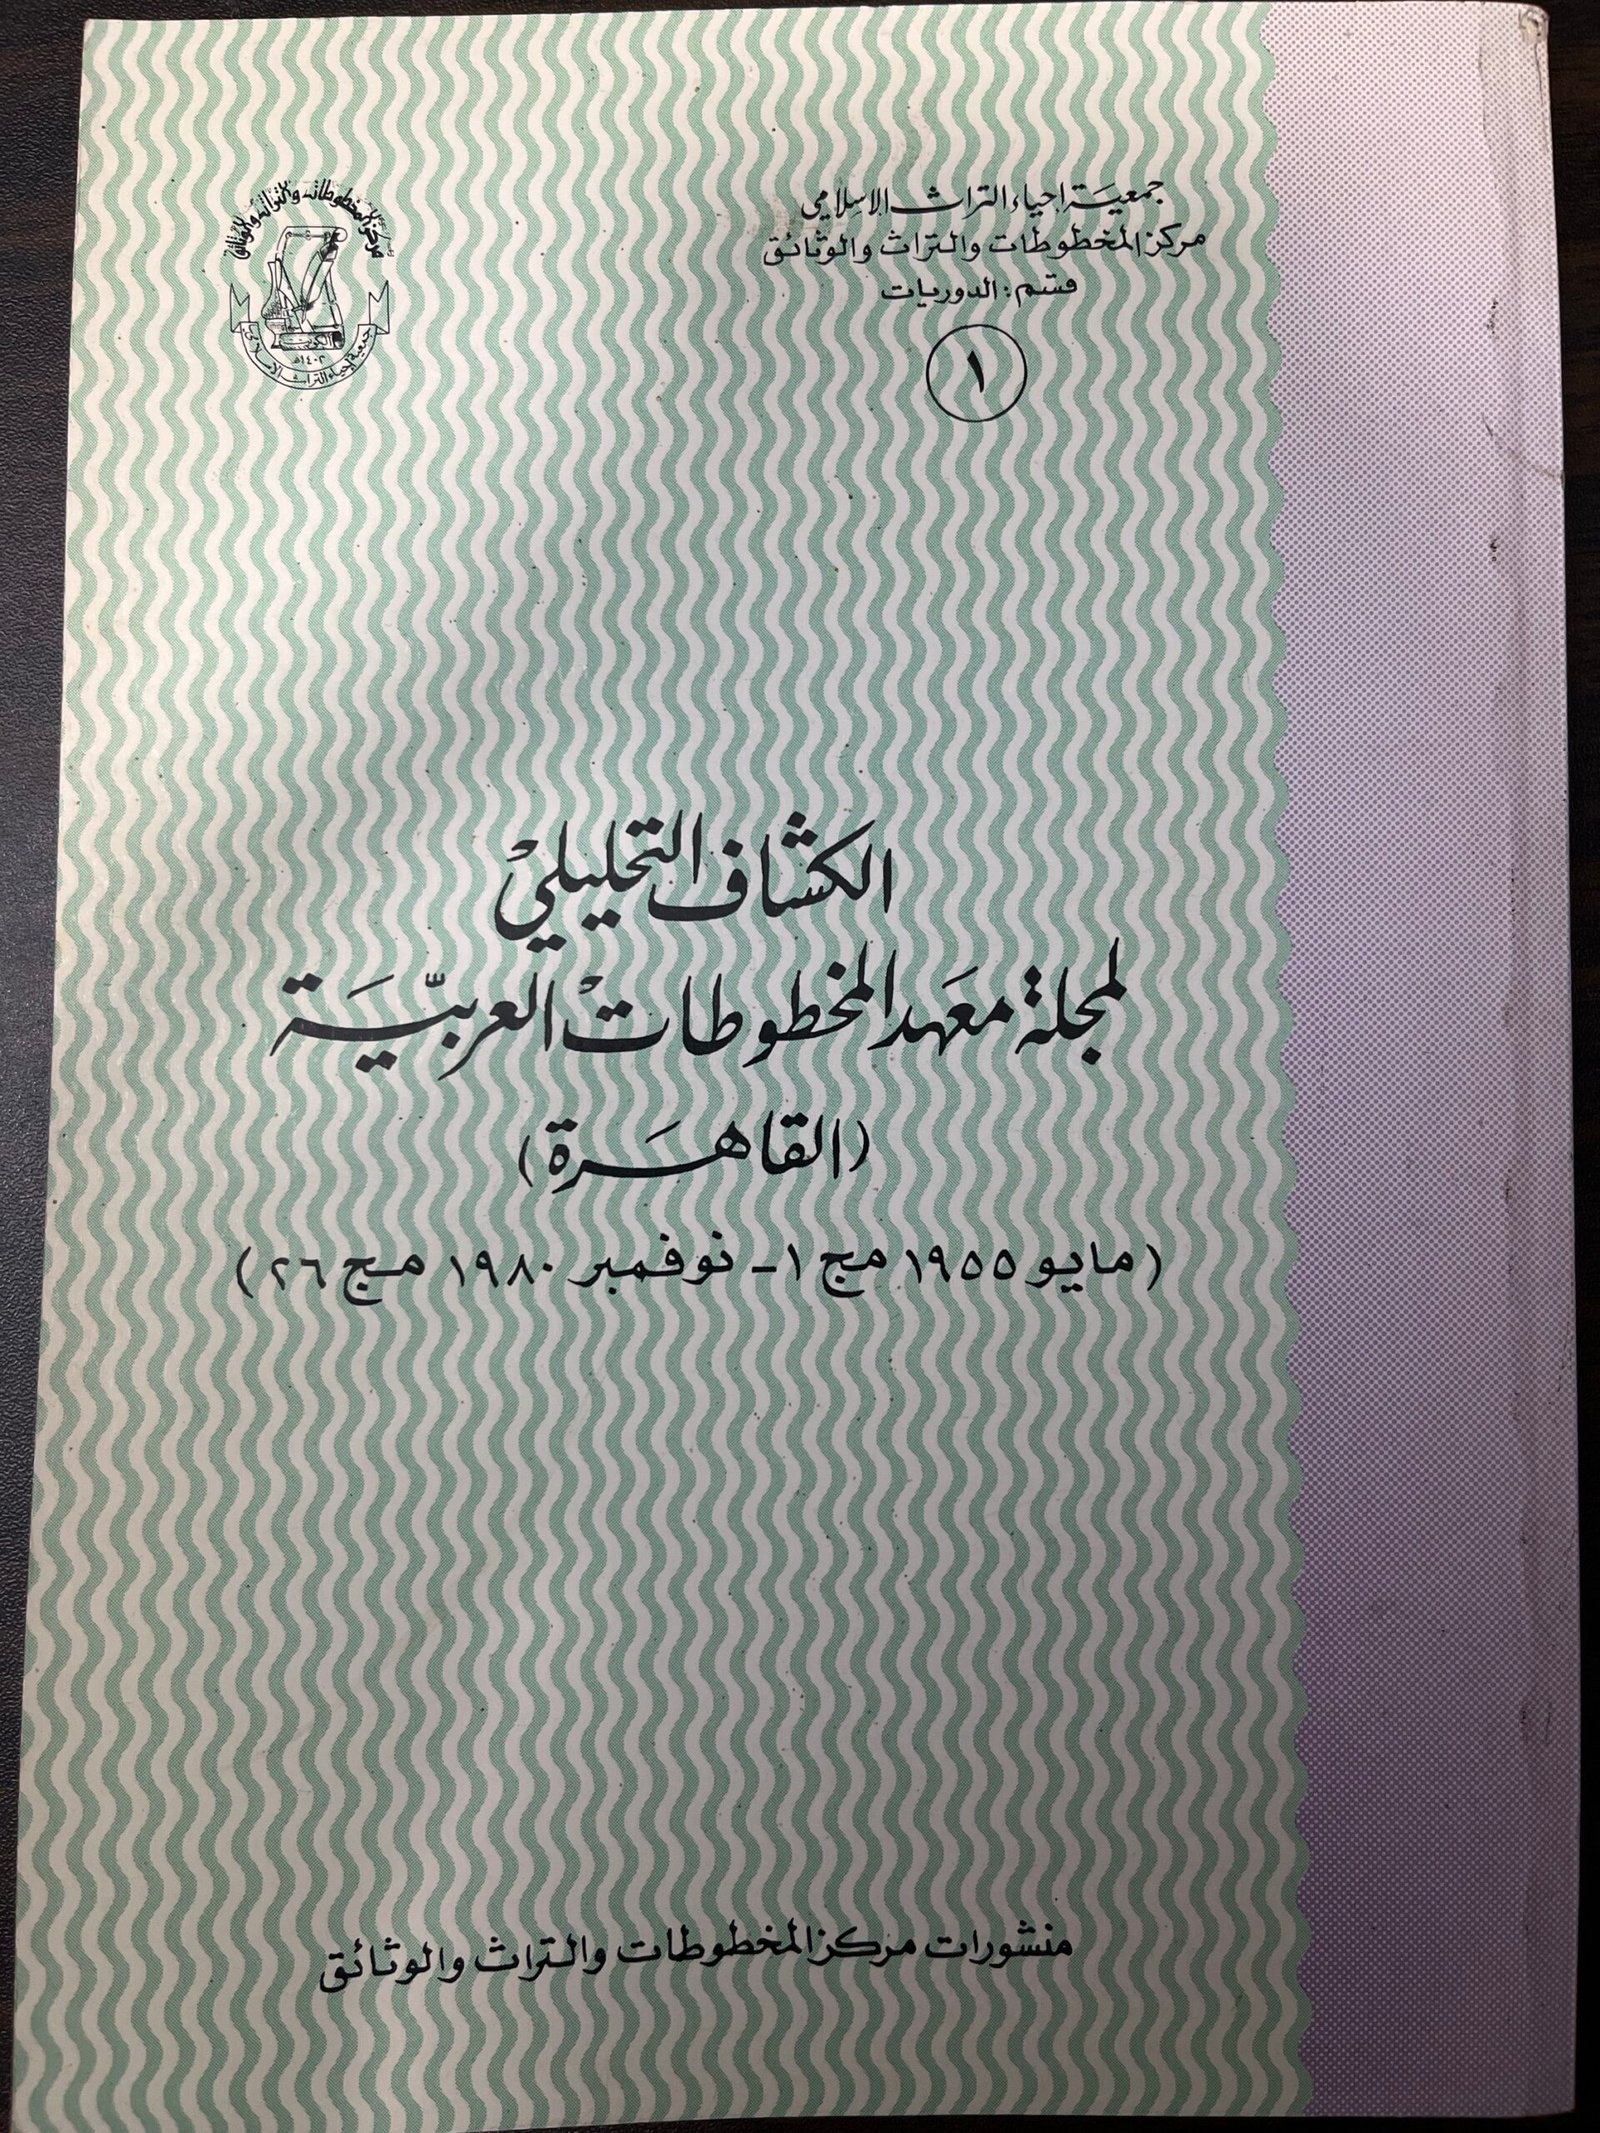 جمعية احياء التراث الاسلامي
مركز المخطوطات والتراث والوثائق
قسم : الدوريات
١
مركز المخطوطات والتراث والوثائق
الكويت
١٤٠٢هـ
جمعية إحياء التراث الاسلامي
الكشاف التحليليْ
لمجلة معَهد المخطوطاتْ العربيَّة
(القاهَرة)
(مايو ١٩٥٥ مج ١ - نوفمبر ١٩٨٠ مج ٢٦)
منشورات مركز المخطوطات والتراث والوثائق